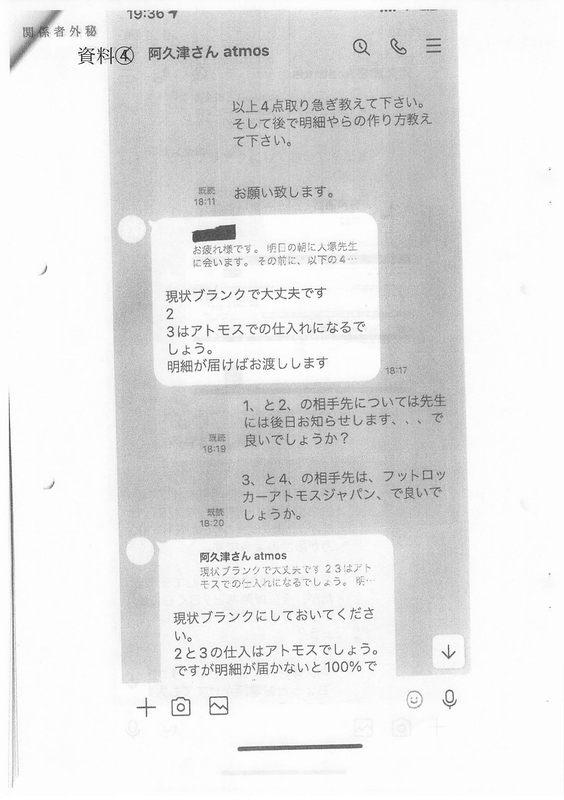 19:36
関係者外秘
資料④ 阿久津さん atmos
以上4点取り急ぎ教えて下さい。
そして後で明細やらの作り方教え
て下さい。
既読
18:11
お願い致します。
お疲れ様です。 明日の朝に大塚先生
に会います。 その前に、以下の4…
現状ブランクで大丈夫です
2
3はアトモスでの仕入れになるで
しょう。
明細が届けばお渡しします
18:17
1、と2、の相手先については先生
には後日お知らせします、、、で
良いでしょうか?
既読
18:19
3、と4、の相手先は、フットロッ
カーアトモスジャパン、で良いで
しょうか。
既読
18:20
阿久津さん atmos
現状ブランクで大丈夫です 2 3はアト
モスでの仕入れになるでしょう。 明…
現状ブランクにしておいてくださ
い。
2と3の仕入はアトモスでしょう。
ですが明細が届かないと100%で